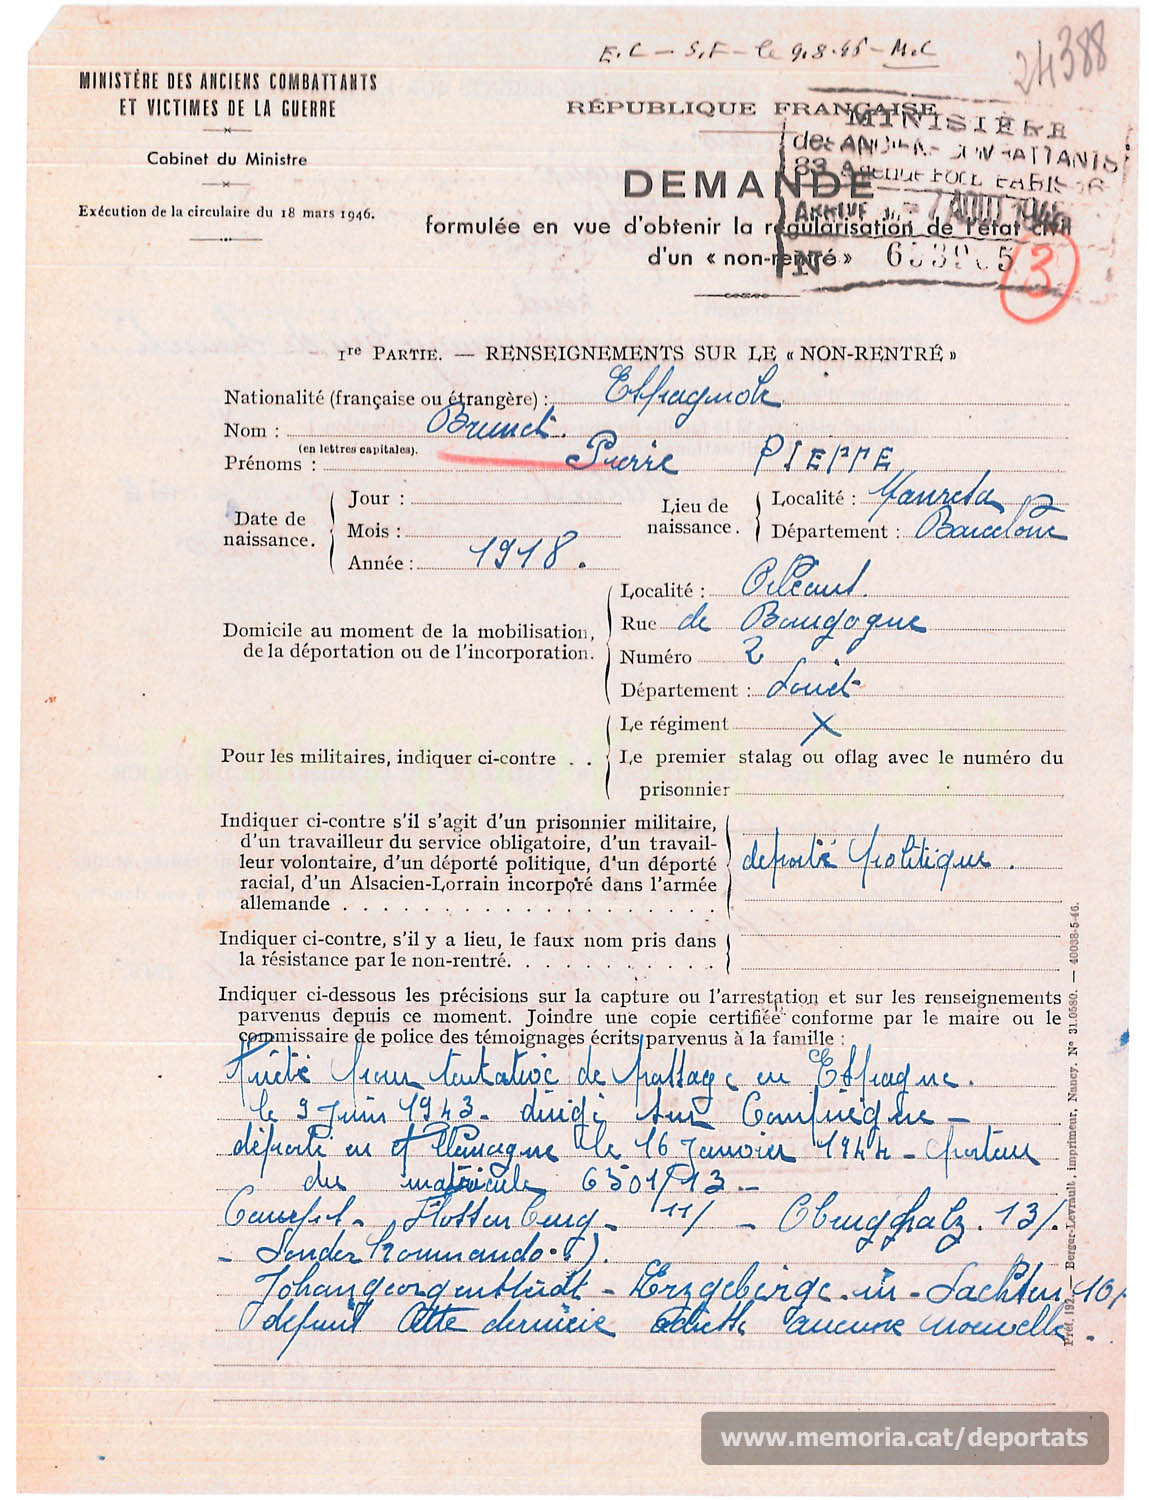 E.C – S.F – le 9.8.46 – M.C
24388
MINISTÈRE DES ANCIENS COMBATTANTS
ET VICTIMES DE LA GUERRE
Cabinet du Ministre
Exécution de la circulaire du 18 mars 1946.
RÉPUBLIQUE FRANÇAISE
MINISTÈRE
des ANCIENS COMBATTANTS
83 Avenue FOCH PARIS 16
ARRIVÉ 7 AOUT 1946
N
DEMANDE
formulée en vue d'obtenir la régularisation de l'état civil
d'un « non-rentré »
3
1re PARTIE. — RENSEIGNEMENTS SUR LE « NON-RENTRÉ »
Nationalité (française ou étrangère) : Espagnole
Nom : Brunet.
(en lettres capitales).
Prénoms : Pierre PIERRE
Date de naissance.
Jour :
Mois :
Année : 1918.
Lieu de naissance.
Localité : Manresa
Département : Barcelone
Domicile au moment de la mobilisation,
de la déportation ou de l'incorporation.
Localité : Orléans.
Rue de Bourgogne
Numéro 2
Département : Loiret
Pour les militaires, indiquer ci-contre . .
Le régiment X
Le premier stalag ou oflag avec le numéro du
prisonnier
Indiquer ci-contre s'il s'agit d'un prisonnier militaire,
d'un travailleur du service obligatoire, d'un travail-
leur volontaire, d'un déporté politique, d'un déporté
racial, d'un Alsacien-Lorrain incorporé dans l'armée
allemande . . . . . . . . . . . . . . . . .
déporté politique.
Indiquer ci-contre, s'il y a lieu, le faux nom pris dans
la résistance par le non-rentré. . . . . . . . . .
Indiquer ci-dessous les précisions sur la capture ou l'arrestation et sur les renseignements
parvenus depuis ce moment. Joindre une copie certifiée conforme par le maire ou le
commissaire de police des témoignages écrits parvenus à la famille :
Arrêté pour tentative de passage en Espagne.
le 9 Juin 1943 – dirigé sur Compiègne –
déporté en Allemagne le 16 Janvier 1944 – porteur
du matricule 6501/13 –
Flossenburg – 11/ – Oberpfalz . 13/.
– Sonder Kommando. ).
Johangeorgenstadt – Erzgebirge – in – Sachsen 10/
depuis cette dernière adresse aucune nouvelle.
Prét. 192. — Berger-Levrault, imprimeur, Nancy. N° 31.0580. — 40038-5-46.
www.memoria.cat/deportats